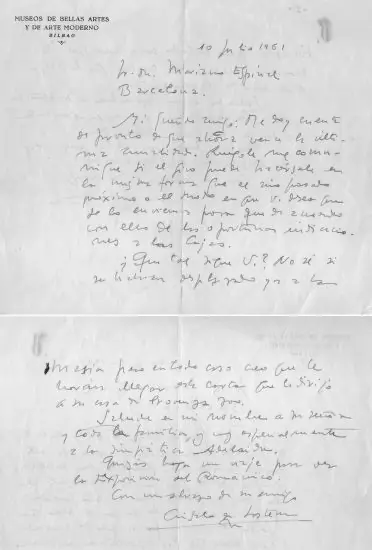 MUSEOS DE BELLAS ARTES
Y DE ARTE MODERNO
BILBAO
10 Julio 1961
Sr. Dn. Mariano Espinal
Barcelona.
Mi querido amigo: Me doy cuenta
de pronto de que ahora vence la últi-
ma anualidad. Ruégole me comu-
nique si el giro puede hacérsele en
la misma forma que el año pasado
próximo o el modo en que V. desea que
se lo enviemos para que de acuerdo
con ello dé las oportunas indicacio-
nes a las Cajas.
¿Qué tal sigue V.? No sé si
se habrán desplazado ya a la
masía pero en todo caso creo que le
harán llegar esta carta que le dirijo
a su casa de
Salude en mi nombre a su señora
y toda la familia, y muy especialmente
a la simpática Adelaida.
Quizás haga un viaje para ver
la Exposición del Románico.
Con un abrazo de su amigo